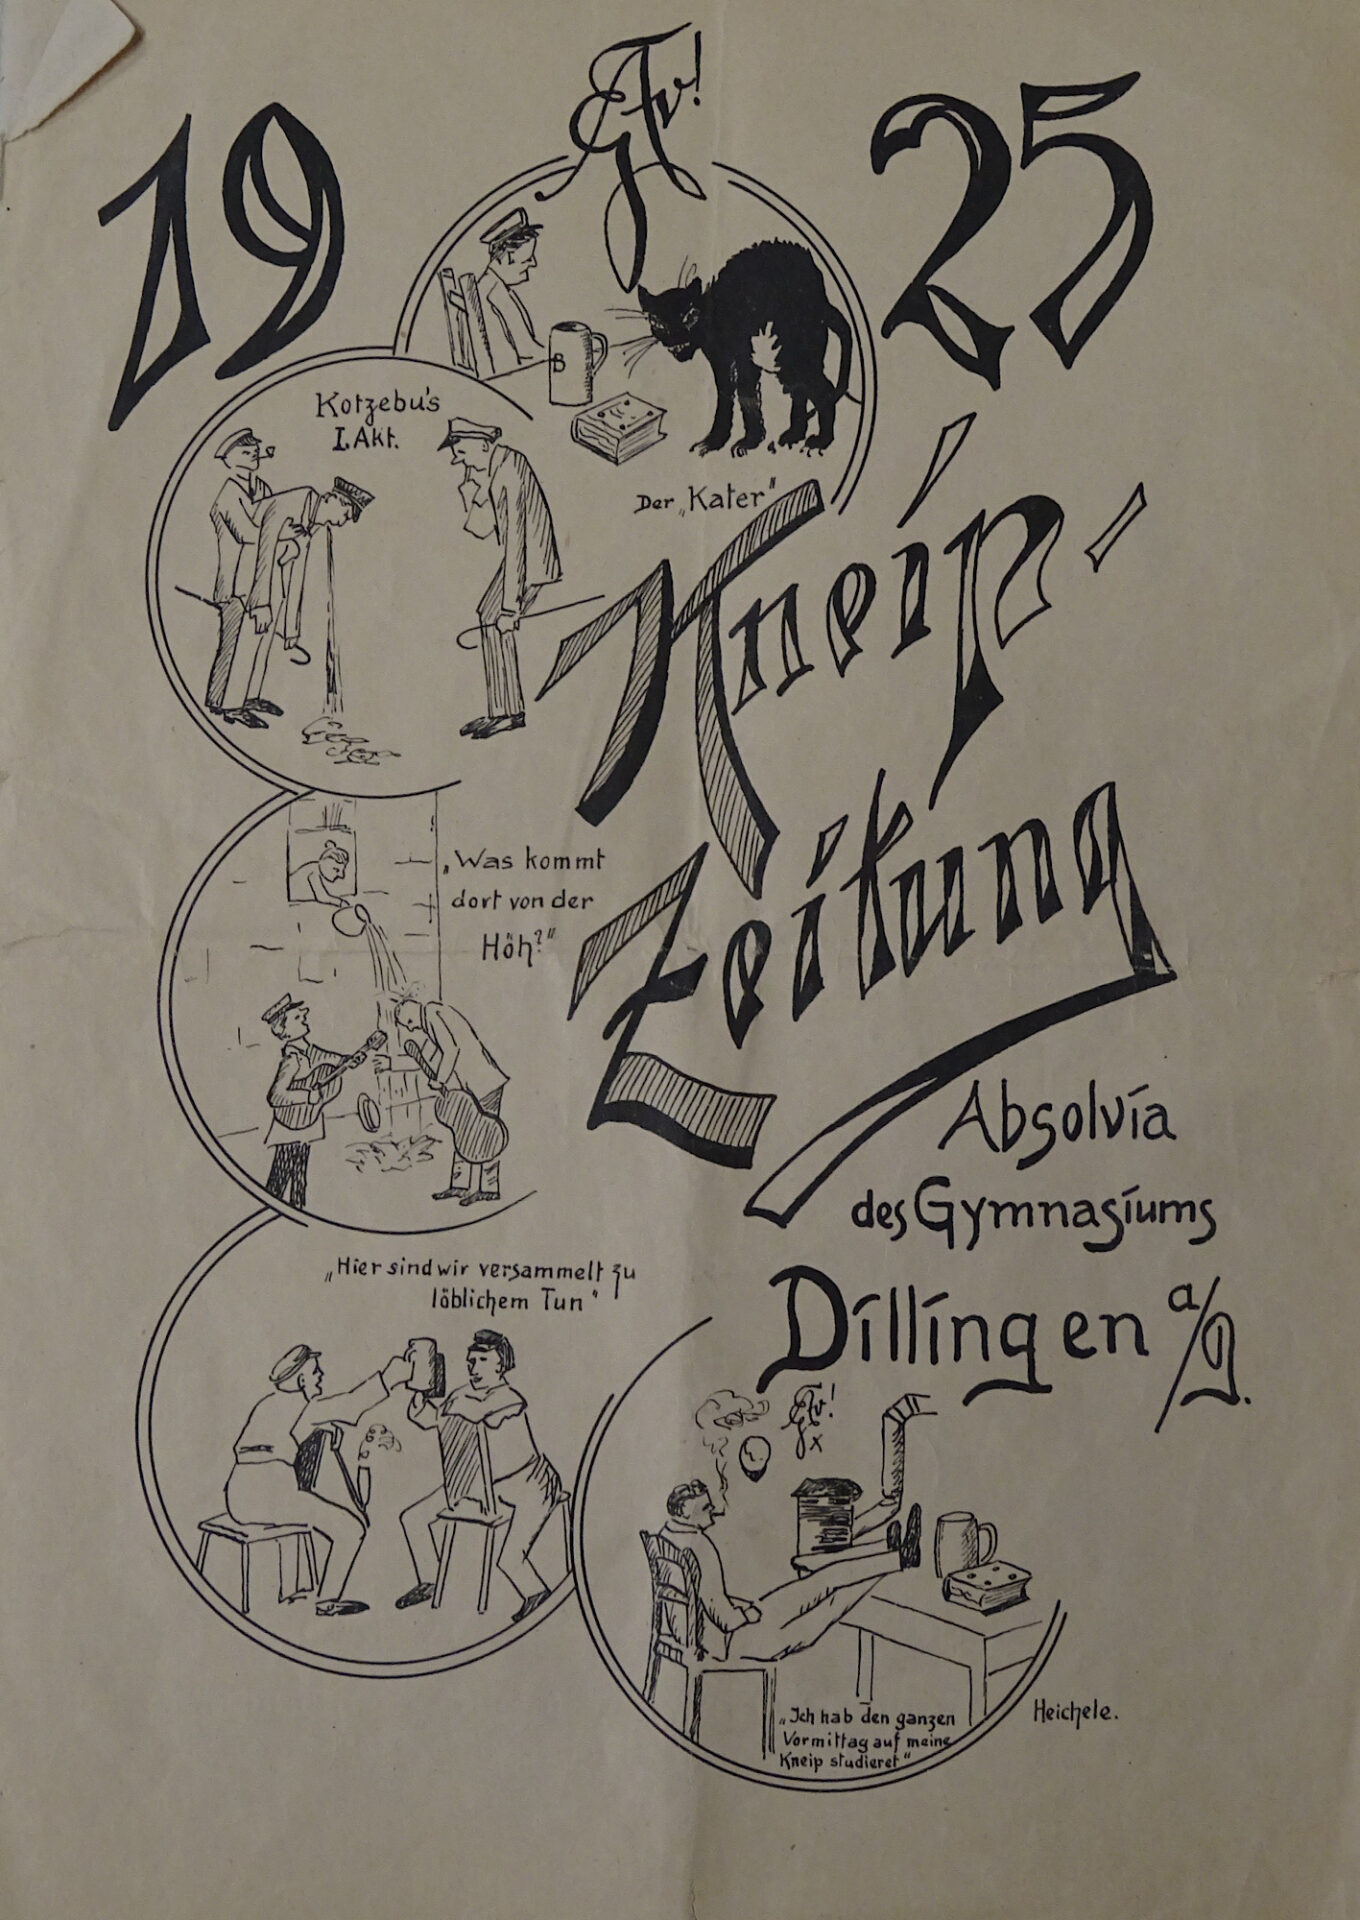 1925
Kotzebu's
I. Akt.
Der „Kater"
Kneip-
Zeitung
„Was kommt
dort von der
Höh?"
Absolvia
des Gymnasiums
Dillingen a/D.
„Hier sind wir versammelt zu
löblichem Tun"
„Ich hab den ganzen
Vormittag auf meine
Kneip studieret"
Heichele.
B